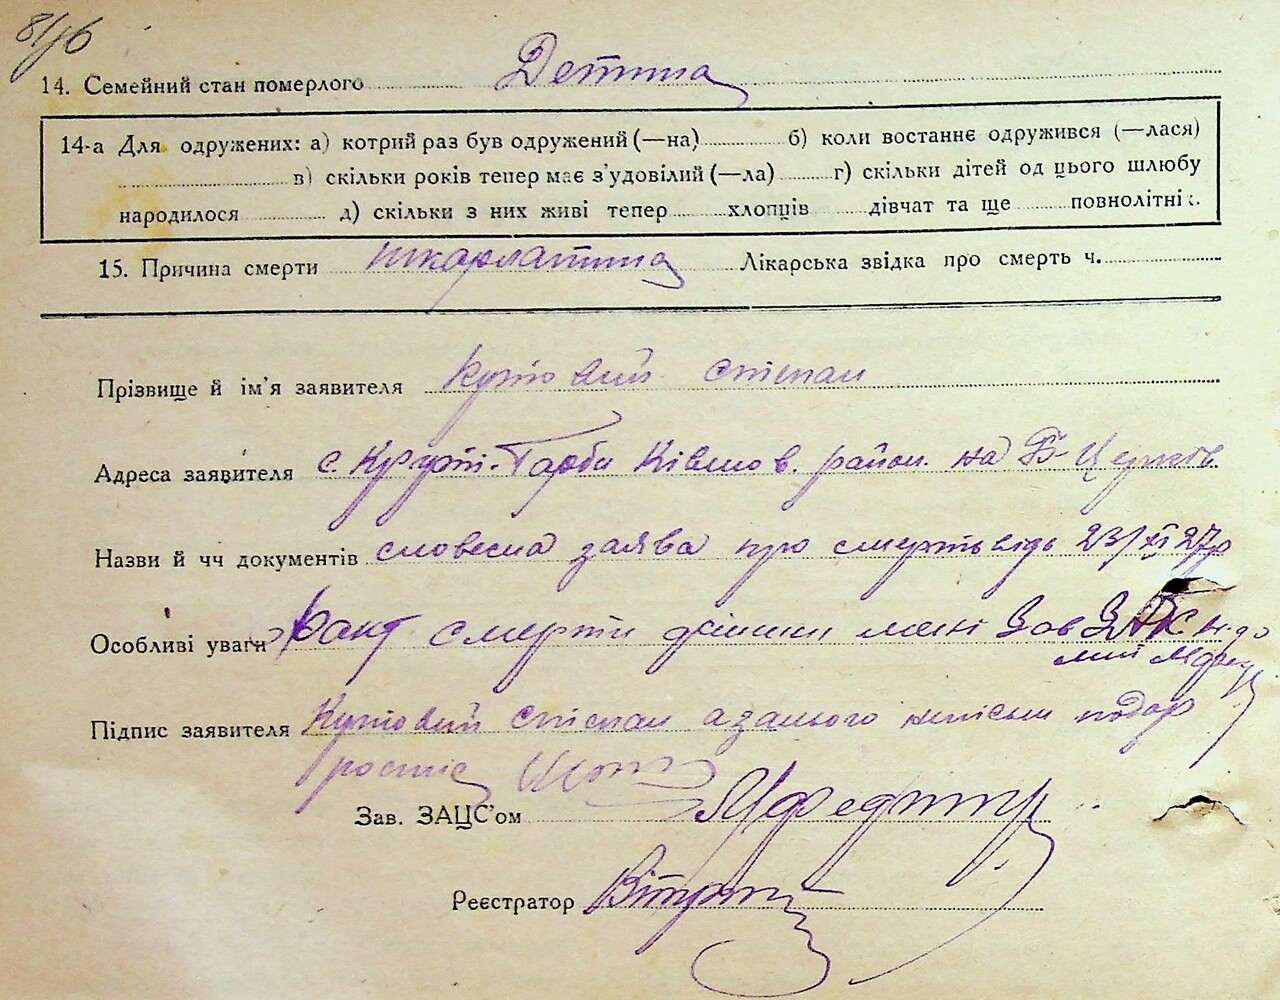 8/16
14. Семейний стан померлого Детина
14-а Для одружених: а) котрий раз був одружений (—на) б) коли востаннє одружився (—лася)
в) скільки років тепер має з'удовілий (—ла) г) скільки дітей од цього шлюбу
народилося д) скільки з них живі тепер хлопців дівчат та ще повнолітні
15. Причина смерти шкарлатина Лікарська звідка про смерть ч.
Прізвище й ім'я заявителя Кутовий Степан
Адреса заявителя с. Круті-Горби район. на Б-Церків
Назви й чч документів словесна заява про смерть від 23/XI 27 р
Особливі уваги факт смерти мені Зав ЗАГС
Підпис заявителя Кутовий Степан
роспис
Зав. ЗАЦС'ом
Реєстратор